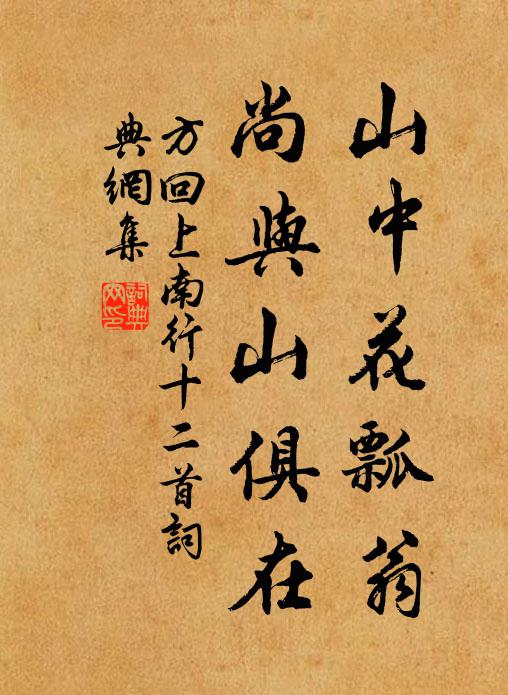 山中花瓢翁
尚與山俱在
方回上南行十二首詞
典網集
詞典
网印